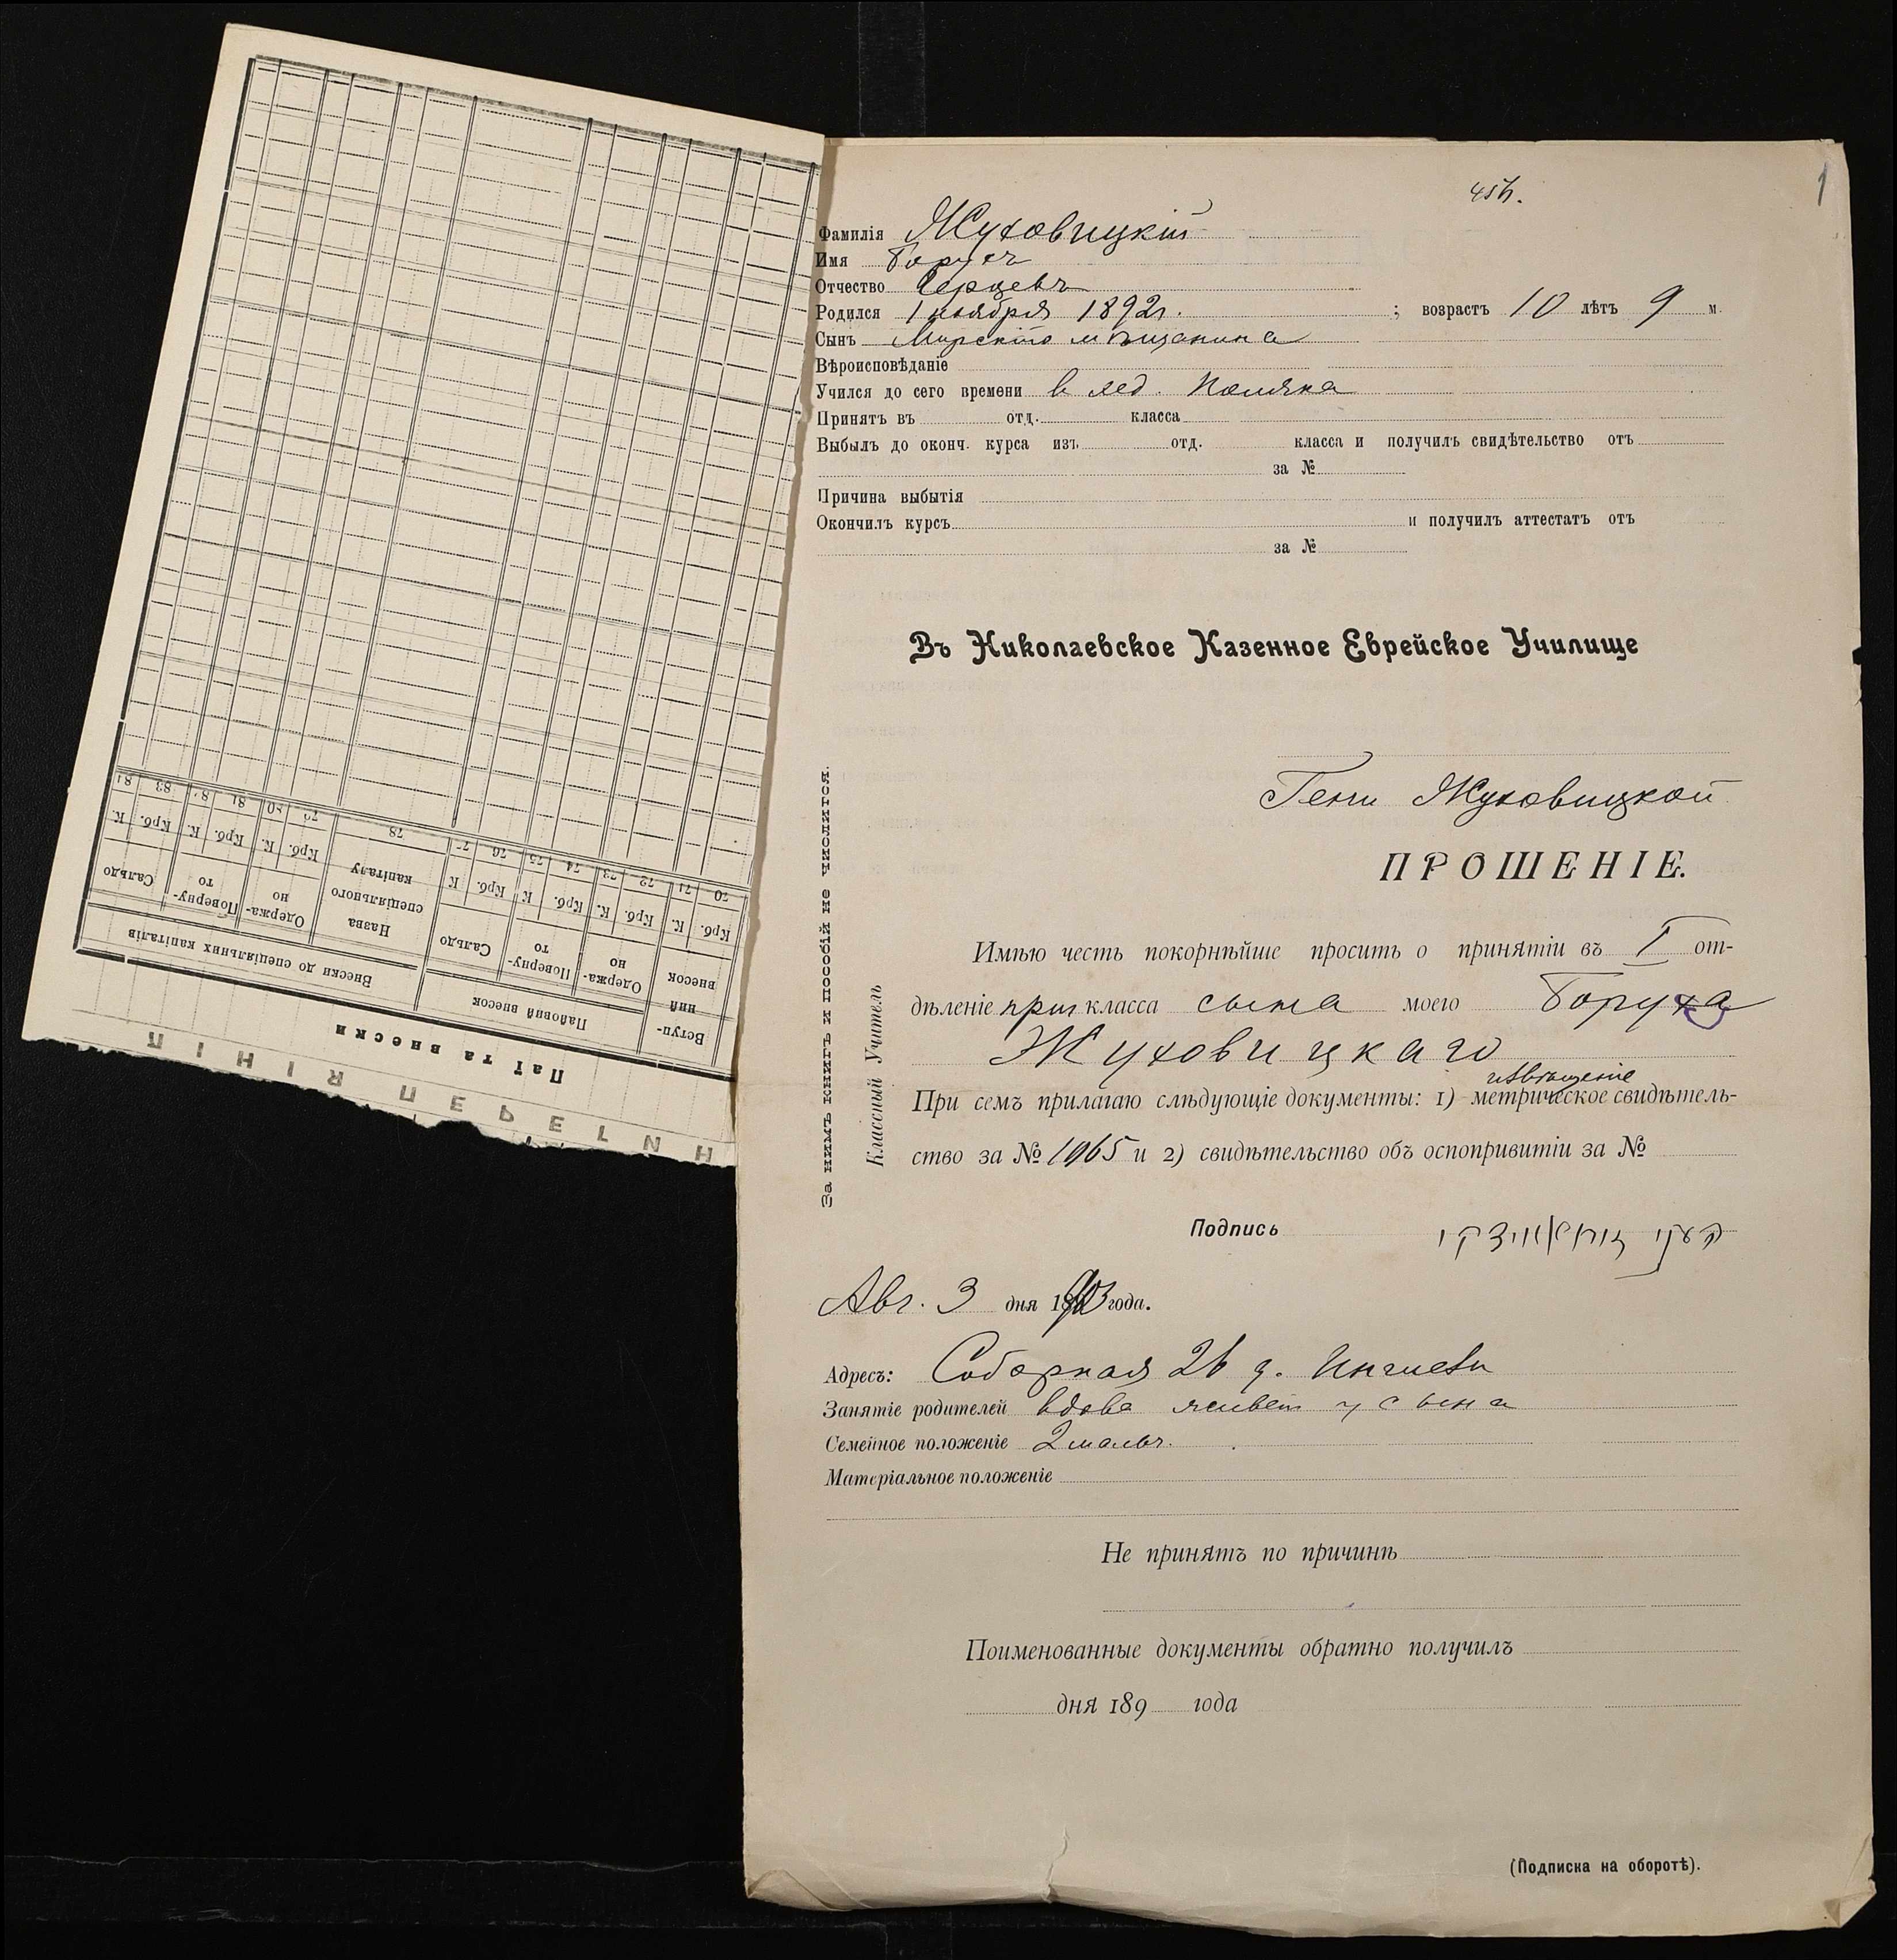 456.
1
Фамилія Жуховицкій
Имя Борухъ
Отчество
Родился 1 ноября 1892 г. ; возрастъ 10 лѣтъ 9 м.
Сынъ Мирскаго мѣщанина
Вѣроисповѣданіе
Учился до сего времени в хед. Поляка
Принятъ въ отд. класса
Выбылъ до оконч. курса изъ отд. класса и получилъ свидѣтельство отъ
за №
Причина выбытія
Окончилъ курсъ и получилъ аттестатъ отъ
за №
Въ Николаевское Казенное Еврейское Училище
Гени Жуховицкой
ПРОШЕНІЕ.
Имѣю честь покорнѣйше просить о принятіи въ I от-
дѣленіе приг класса сына моего Боруха
Жуховицкаго
извѣщеніе
При семъ прилагаю слѣдующіе документы: 1) метрическое свидѣтель-
ство за № 1965 и 2) свидѣтельство объ оспопривитіи за №
Подпись
Авг. 3 дня 1903 года.
Адресъ: Соборная 26 д.
Занятіе родителей вдова живет у сына
Семейное положеніе 2 мальч.
Матеріальное положеніе
Не принятъ по причинѣ
Поименованные документы обратно получилъ
дня 189 года
(Подписка на оборотѣ).
За нимъ книгъ и пособій не числится.
Классный Учитель
Н
ПЕРЕЛ
ІНІЯ
Паї та внески
Вступ-
ний
внесок
Пайовий внесок
Внески до спеціяльних капіталів
Одержа-
но
Поверну-
то
Сальдо
Назва
спеціяльного
капіталу
Одержа-
но
Поверну-
то
Сальдо
Крб. К. Крб. К. Крб. К Крб. К Крб. К. Крб. К. Крб. К
70 71 72 73 74 75 76 78 81 83